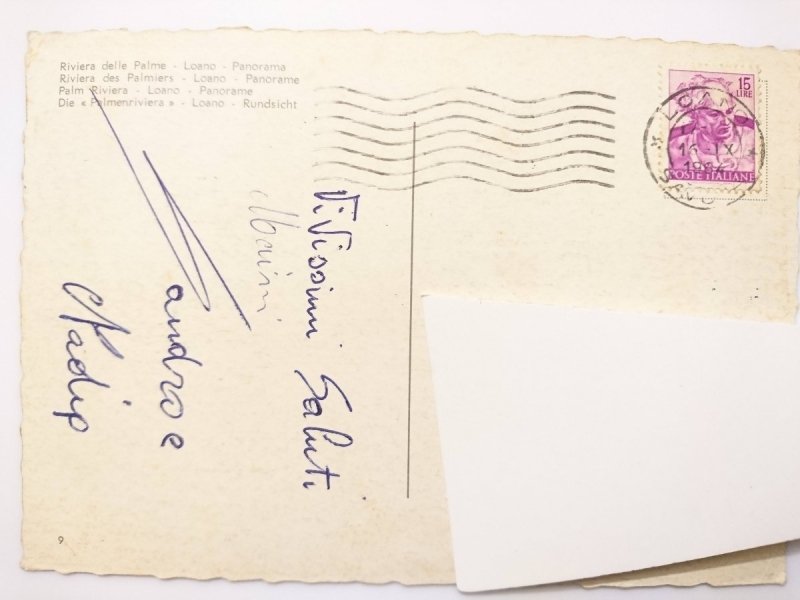 Riviera delle Palme - Loano - Panorama
Riviera des Palmiers - Loano - Panorame
Palm Riviera - Loano - Panorame
Die « Palmenriviera » - Loano - Rundsicht
15
LIRE
LOANO
16 IX
POSTE ITALIANE
ViVissimi Saluti
9